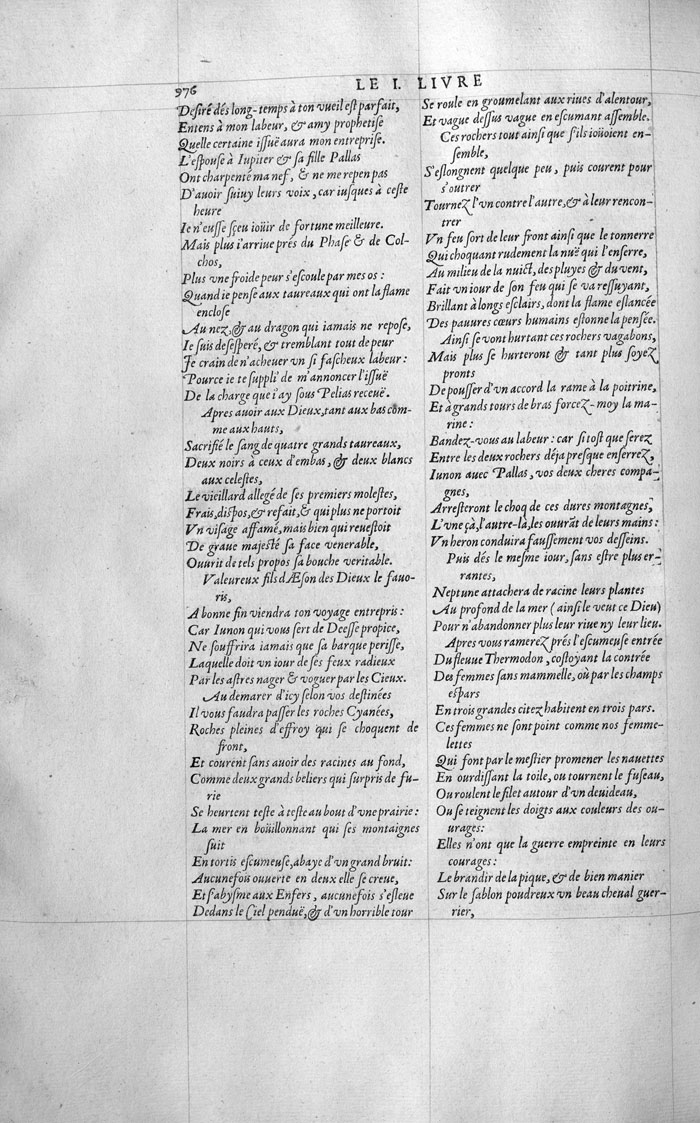 976
LE I. LIVRE
Desiré dés long-temps à ton vueil est parfait,
Entens à mon labeur, & amy prophetise
Quelle certaine issuë aura mon entreprise.
L'espouse à Iupiter & sa fille Pallas
Ont charpenté ma nef, & ne me repen pas
D'auoir suiuy leurs voix, car iusques à ceste
heure
Ie n'eusse sçeu ioüir de fortune meilleure.
Mais plus i'arriue prés du Phase & de Col-
chos,
Plus vne froide peur s'escoule par mes os :
Quand ie pense aux taureaux qui ont la flame
enclose
Au nez, & au dragon qui iamais ne repose,
Ie suis desesperé, & tremblant tout de peur
Ie crain de n'acheuer vn si fascheux labeur :
Pource ie te suppli' de m'annoncer l'issuë
De la charge que i'ay sous Pelias receuë.
Apres auoir aux Dieux, tant aux bas com-
me aux hauts,
Sacrifié le sang de quatre grands taureaux,
Deux noirs à ceux d'embas, & deux blancs
aux celestes,
Le vieillard allegé de ses premiers molestes,
Frais, dispos, & refait, & qui plus ne portoit
Vn visage affamé, mais bien qui reuestoit
De graue majesté sa face venerable,
Ouurit de tels propos sa bouche veritable.
Valeureux fils d'Æson des Dieux le fauo-
ris,
A bonne fin viendra ton voyage entrepris :
Car Iunon qui vous sert de Deesse propice,
Ne souffrira iamais que sa barque perisse,
Laquelle doit vn iour de ses feux radieux
Par les astres nager & voguer par les Cieux.
Au demarer d'icy selon vos destinées
Il vous faudra passer les roches Cyanées,
Roches pleines d'effroy qui se choquent de
front,
Et courent sans auoir des racines au fond,
Comme deux grands beliers qui surpris de fu-
rie
Se heurtent teste à teste au bout d'vne prairie :
La mer en boüillonnant qui ses montaignes
suit
En tortis escumeuse, abaye d'vn grand bruit :
Aucunefois ouuerte en deux elle se creue,
Et s'abysme aux Enfers, aucunefois s'esleue
Dedans le Ciel penduë, & d'vn horrible tour
Se roule en groumelant aux riues d'alentour,
Et vague dessus vague en escumant assemble.
Ces rochers tout ainsi que s'ils ioüoient en-
semble,
S'eslongnent quelque peu, puis courent pour
s'outrer
Tournez l'vn contre l'autre, & à leur rencon-
trer
Vn feu sort de leur front ainsi que le tonnerre
Qui choquant rudement la nuë qui l'enserre,
Au milieu de la nuict, des pluyes & du vent,
Fait vn iour de son feu qui se va ressuyant,
Brillant à longs esclairs, dont la flame eslancée
Des pauures cœurs humains estonne la pensée.
Ainsi se vont hurtant ces rochers vagabons,
Mais plus se hurteront & tant plus soyez
pronts
De pousser d'vn accord la rame à la poitrine,
Et à grands tours de bras forcez-moy la ma-
rine :
Bandez-vous au labeur : car si tost que serez
Entre les deux rochers déja presque enserrez,
Iunon auec Pallas, vos deux cheres compa-
gnes,
Arresteront le choq de ces dures montagnes,
L'vne çà, l'autre-là, les ouurãt de leurs mains :
Vn heron conduira faussement vos desseins.
Puis dés le mesme iour, sans estre plus er-
rantes,
Neptune attachera de racine leurs plantes
Au profond de la mer (ainsi le veut ce Dieu)
Pour n'abandonner plus leur riue ny leur lieu.
Apres vous ramerez prés l'escumeuse entrée
Du fleuue Thermodon, costoyant la contrée
Des femmes sans mammelle, où par les champs
espars
En trois grandes citez habitent en trois pars.
Ces femmes ne sont point comme nos femme-
lettes
Qui font par le mestier promener les nauettes
En ourdissant la toile, ou tournent le fuseau,
Ou roulent le filet autour d'vn deuideau,
Ou se teignent les doigts aux couleurs des ou-
urages :
Elles n'ont que la guerre empreinte en leurs
courages :
Le brandir de la pique, & de bien manier
Sur le sablon poudreux vn beau cheual guer-
rier,